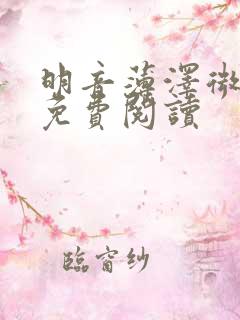 明音薄澤微
免費閱讀
臨窗紗